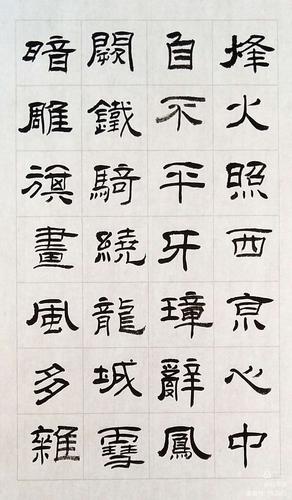 烽火照西京心中
自不平牙璋辭鳳
闕鐵騎繞龍城雪
暗雕旗畫風多雜